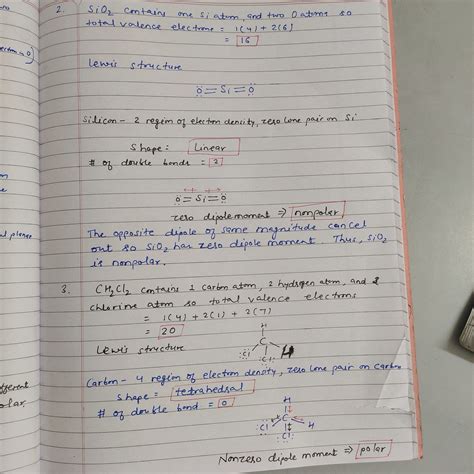 2. SiO2 contains one Si atom, and two O atoms so
total valence electrons = 1(4) + 2(6)
= 16
Lewis structure
O=Si=O
Silicon - 2 region of electron density, zero lone pair on Si
Shape: Linear
# of double bonds = 2
O=Si=O
zero dipole moment ⇒ nonpolar
The opposite dipole of same magnitude cancel
out so SiO2 has zero dipole moment. Thus, SiO2
is nonpolar.
3. CH2Cl2 contains 1 carbon atom, 2 hydrogen atom, and 2
chlorine atom so total valence electrons
= 1(4) + 2(1) + 2(7)
= 20
H
Lewis structure
C
Cl H
Cl
Carbon - 4 region of electron density, zero lone pair on carbon
Shape = tetrahedral
# of double bond = 0
H
C
Cl H
Cl
Nonzero dipole moment ⇒ polar